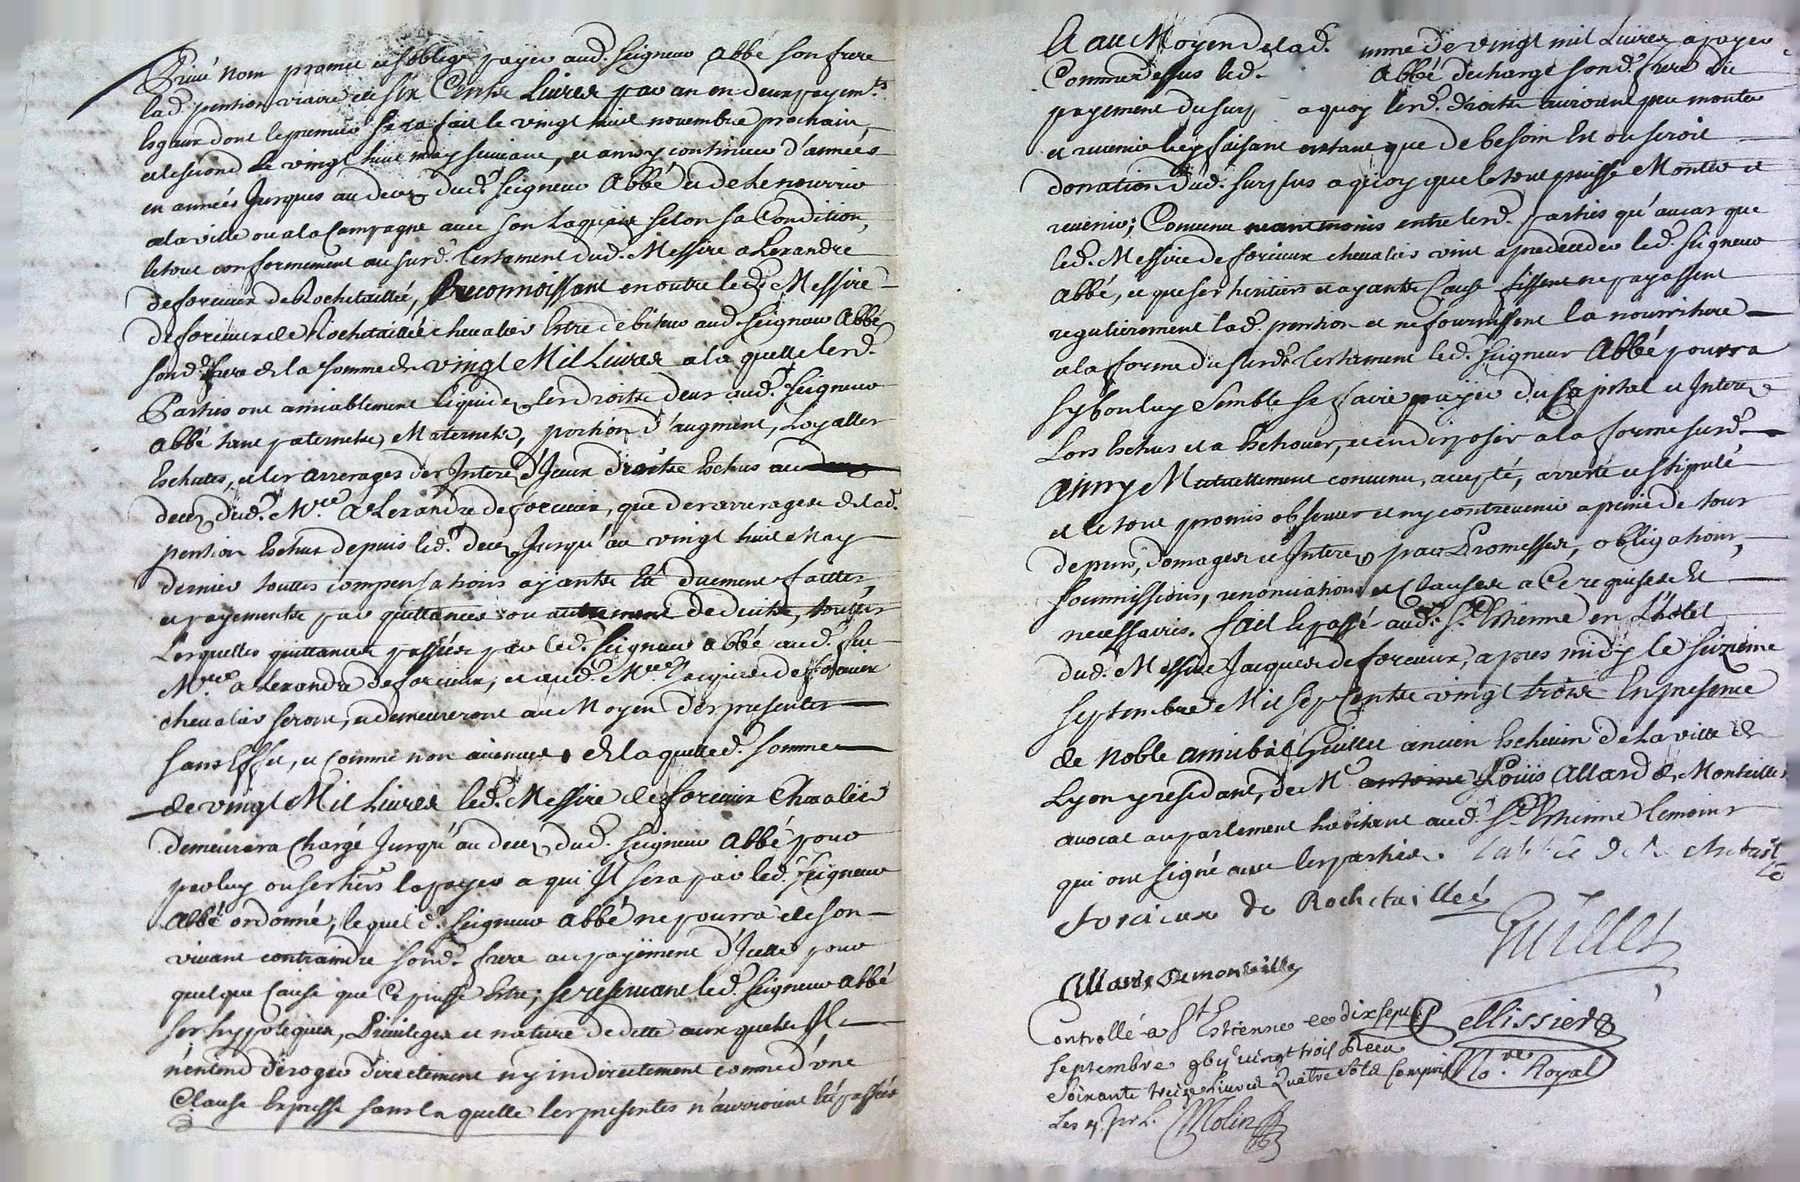 Privé nom promet et s'oblige payer aud. Seigneur Abbé son frere
lad. pention viagere de six Cents Livres par an en deux payemts
Esgaux dont le premier sera fait le vingt huit novembre prochain
et le second le vingt huit may suivant, et ainsy continuer d'années
en années Jusques au decez dud. Seigneur Abbé et de le nourrir
a la ville ou a la Campagne avec son Laquais selon sa Condition,
le tout conformement au surd. testament dud. Messire alexandre
deforcieux de Rochetaillée, Reconnoissant en outre led. Messire
deforcieux de Rochetaillée chevalier Estre debiteur aud. Seigneur Abbé
sond. frere de la somme de vingt Mil Livres a la quelle lesd.
Parties ont amiablement liquidez les droits deus aud. Seigneur
Abbé tant paternels, Maternels, portion d'augment, Loyalles
Escheutes, et les arrerages des Interes d'Iceux droits Escheus au
decez dud. Mre alexandre deforcieux, que des arrerages de lad.
pention Escheus depuis led. decez Jusqu'au vingt huit May
dernier touttes compensations ayants Eté duement faittes,
et payements par quittances ou autrement deduits, touttes
Lesquelles quittances passées par led. Seigneur Abbé aud. feu
Mre alexandre deforcieux, et aud. Mre Jacques deforcieux
chevalier seront, et demeureront au Moyen des presentes
sans Effet, et comme non avenues. de laquelle d. somme
de vingt Mil Livres led. Messire deforcieux Chevalier
demeurera Chargé Jusqu'au decez dud. Seigneur Abbé pour
par luy ou ses hers la payer a qui Il sera par led. Seigneur
Abbé ordonné, lequel d. Seigneur Abbé ne pourra de son
vivant contraindre sond. frere au payement d'Icelle pour
quelque Cause que Ce puisse Estre; se reservant led. Seigneur Abbé
ses hyppoteques, Privileges et nature de dette auxquels Il
n'entend deroger directement ny indirectement comme d'une
Clause Expresse sans la quelle les presentes n'auroient Eté passées
Et au Moyen de lad. mme de vingt mil Livres a payer
Comme dessus led. Abbé decharge sond. frere du
payement du surp a quoy lesd. droits auroient peu monter
et revenir luy faisant entant que de besoin Est ou seroit
donation dud. surplus a quoy que le tout puisse Monter et
revenir; Convenu neantmoins entre lesd. parties qu'au cas que
led. Messire deforcieux chevalier vint a predeceder led. Seigneur
Abbé, et que ses heritiers et ayants Cause fissent ne payassent
regulierement lad. pention et ne fournissent la nourriture
a la forme du surd. testament led. Seigneur Abbé pourra
sy bon luy semble se faire payer du Capital et Interes
Lors Escheus et a Escheoir, et en disposer a la forme surd.
ainsy Mutuellement convenu, accepté, arresté et stipulé
et le tout promis observer et ny contrevenir a peine de tous
depens, domages et Interes par Promesses, obligations,
soumissions, renonciations et Clauses a Ce requises et
necessaires. fait Et passé aud. St. Etienne en L'hotel
dud. Messire Jacques deforcieux, apres midy le seizieme
septembre Mil sept Cents vingt trois En presence
de Noble annibal Guillet ancien Eschevin de la ville de
Lyon y residant, de Me antoine Louis Allard de Monteilles
avocat au parlement habitant aud. St Etienne temoins
qui ont signé avec les parties.
forcieux de Rochetaillée
Guillet
Allard Demonteilles
Controllé a St Estienne le dix sept
septembre 1723 vingt trois Receu
Soixante treize Livres Quatre sols Compris
Les 4. s. pr L. Molin
Pellissier
Nore Royal